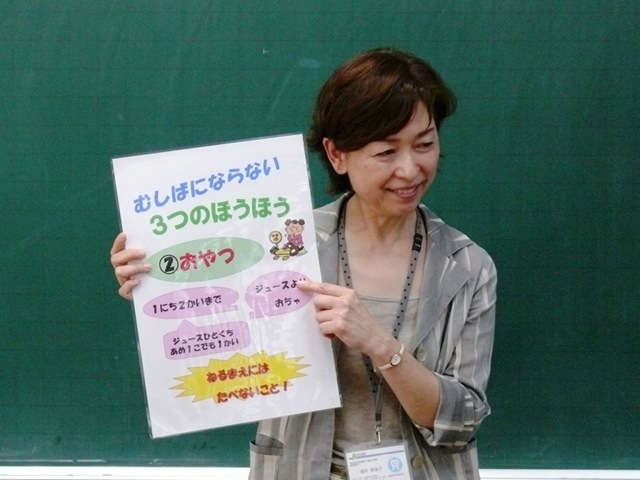 むしばにならない
3つのほうほう
②おやつ
1にち2かいまで
ジュースより
おちゃ
ジュースひとくち
あめ1こでも1かい
ねるまえには
たべないこと!